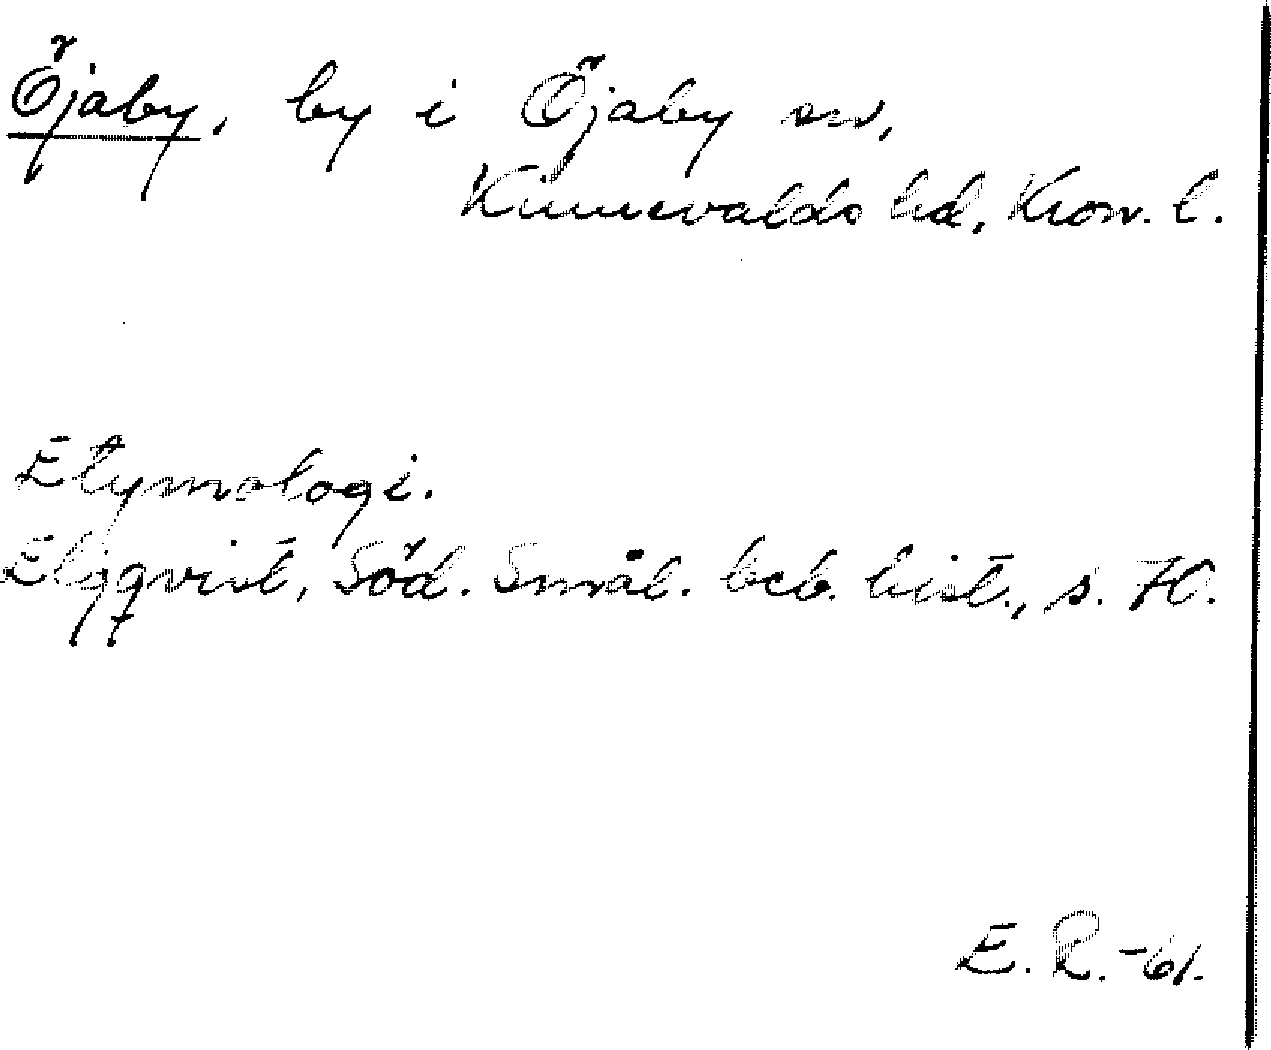 Öjaby, by i Öjaby sn,
Kinnevalds hd, Kron. l.
Etymologi.
Elgqvist, Söd. Smål. beb. hist., s. 70.
E. R. -61.